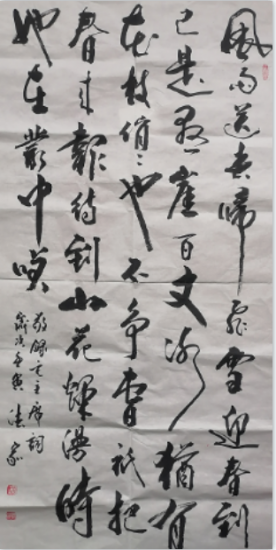 風雨送春歸飛雪迎春到
已是懸崖百丈冰猶有
花枝俏々也不爭春祇把
春来報待到山花爛漫時
她在叢中咲
敬録毛主席詞